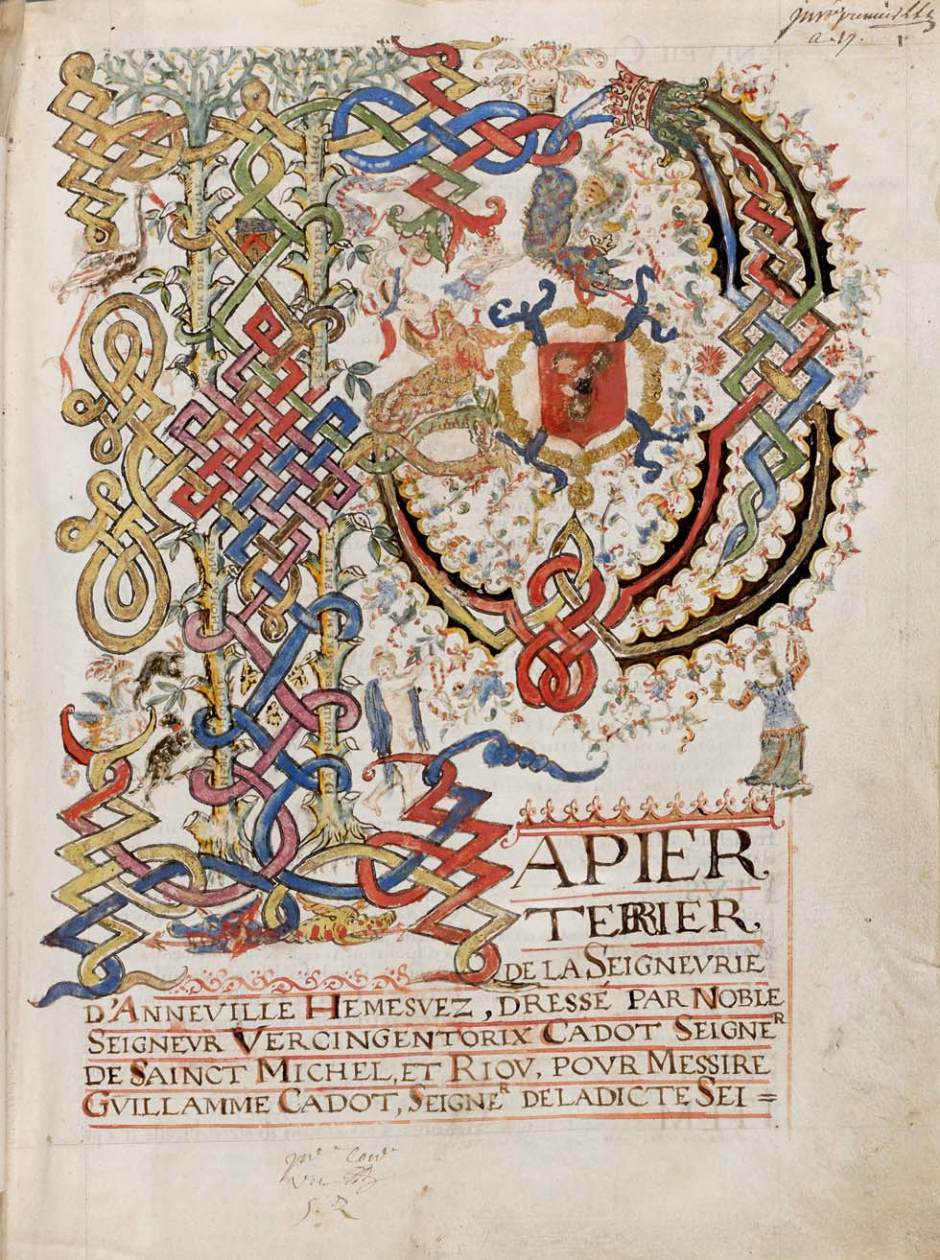 PAPIER
TERRIER,
DE LA SEIGNEVRIE
D'ANNEVILLE HEMESVEZ, DRESSÉ PAR NOBLE
SEIGNEVR VERCINGENTORIX CADOT SEIGNER
DE SAINCT MICHEL, ET RIOV, POVR MESSIRE
GVILLAMME CADOT, SEIGNER DE LADICTE SEI =